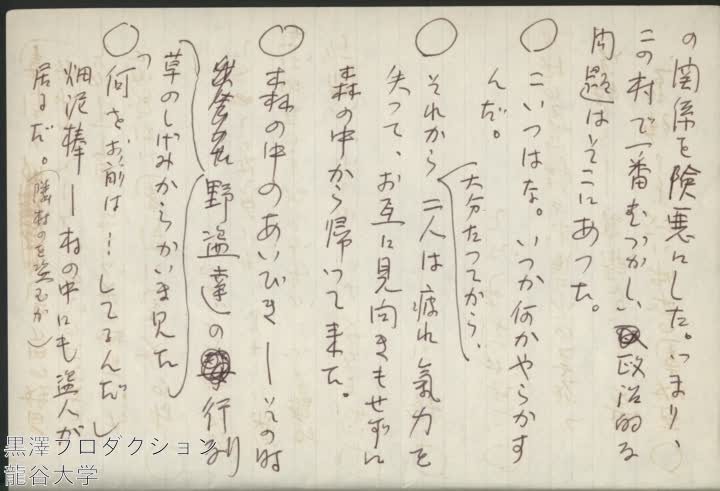 の関係を険悪にした。つまり、
この村で一番むつかしい政治的な
問題はそこにあつた。
○こいつはな。いつか何かやらかす
んだ。
(大分たつてから、
○それから二人は疲れ氣力を
失つて、お互に見向きもせずに
森の中から帰つて来た。
○森の中のあいびき―その時
野盗達の行列
草のしげみからかいま見た
○「何をお前は…してるんだ」
畑泥棒―村の中にも盗人が
居るだ。(隣村のを盗むか)
黒澤プロダクション
龍谷大学